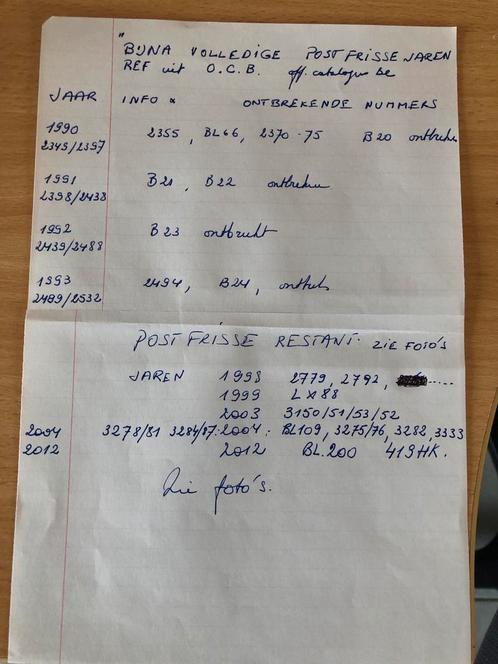 " BIJNA VOLLEDIGE POSTFRISSE JAREN
REF uit O.C.B. off. catalogus be
JAAR INFO * ONTBREKENDE NUMMERS
1990 2355, BL66, 2370-75 B20 ontbreken
2345/2397
1991 B21, B22 ontbreken
2398/2438
1992 B23 ontbreekt
2439/2488
1993 2494, B24, ontbr
2489/2532
POSTFRISSE RESTANT. ZIE FOTO'S
JAREN 1998 2779, 2792, ......
1999 LX88
2003 3150/51/53/52
2004 3278/81 3284/87: 2004: BL109, 3275/76, 3282, 3333
2012 2012 BL.200 419HK.
Zie foto's.